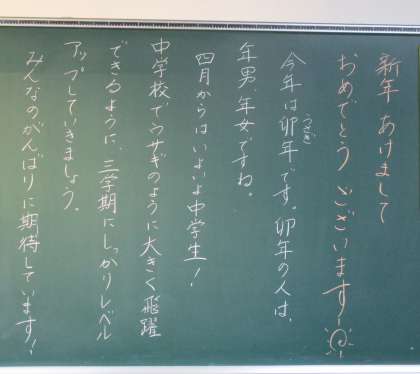 新年 あけまして
おめでとう ございます！
今年は卯年です。卯年の人は、
うさぎ
年男、年女ですね。
四月からはいよいよ中学生！
中学校でウサギのように大きく飛躍
できるように、三学期にしっかりレベル
アップしていきましょう。
みんなのがんばりに期待しています！